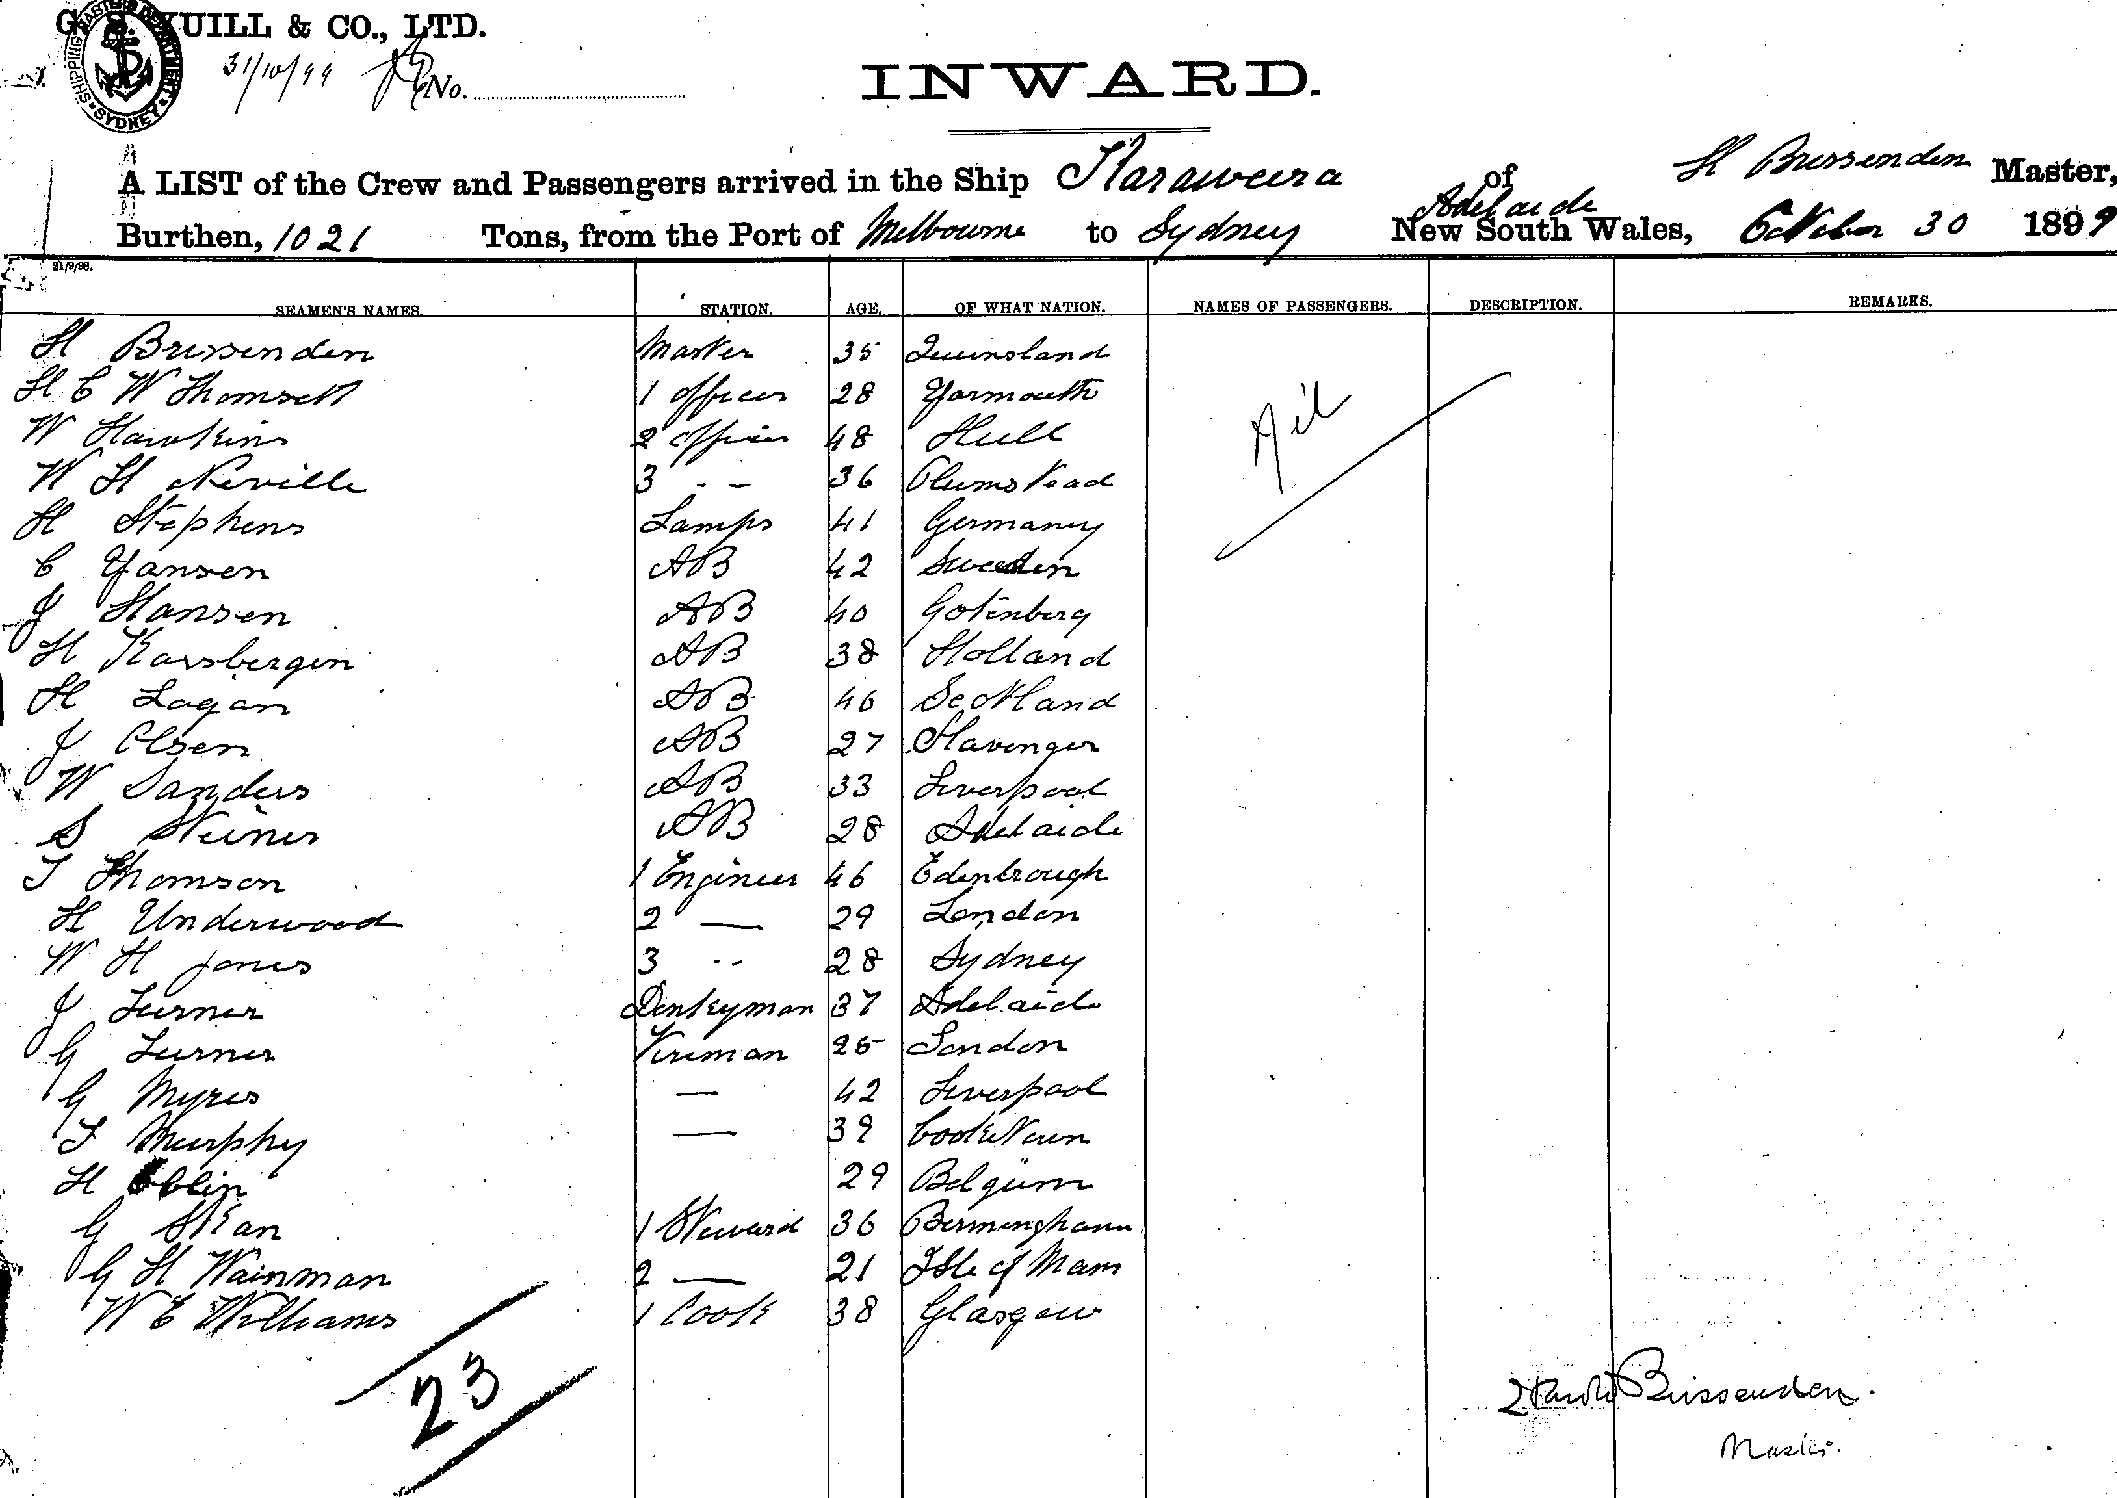 G. S. YUILL & CO., LTD.
SHIPPING MASTER'S DEPARTMENT SYDNEY
31/10/99 No.
INWARD.
A LIST of the Crew and Passengers arrived in the Ship Karaweera of Adelaide H Brissenden Master,
Burthen, 1021 Tons, from the Port of Melbourne to Sydney New South Wales, October 30 1899
21/9/98.
SEAMEN'S NAMES. STATION. AGE. OF WHAT NATION. NAMES OF PASSENGERS. DESCRIPTION. REMARKS.
H Brissenden Master 35 Queensland
H C W Thomsett 1 Officer 28 Yarmouth Nil
W Hawkins 2 Officer 48 Hull
W H Neville 3 - - 36 Plumstead
H Stephens Lamps 41 Germany
C Yansen AB 42 Sweden
J Hansen AB 40 Gotenberg
H Karsbergen AB 38 Holland
H Logan AB 46 Scotland
J Olsen AB 27 Stavenger
W Sanders AB 33 Liverpool
S Steiner AB 28 Adelaide
T Thomson 1 Engineer 46 Edenbrough
H Underwood 2 — 29 London
W H Jones 3 -- 28 Sydney
J Turner Donkeyman 37 Adelaide
G Turner Fireman 25 London
G Myres — 42 Liverpool
T Murphy — 39 Cooktown
H 29 Belgium
G Stean 1 Steward 36 Birmingham
G H Wainman 2 — 21 Isle of Man
W E Williams 1 Cook 38 Glasgow
23
Brissenden.
Master.